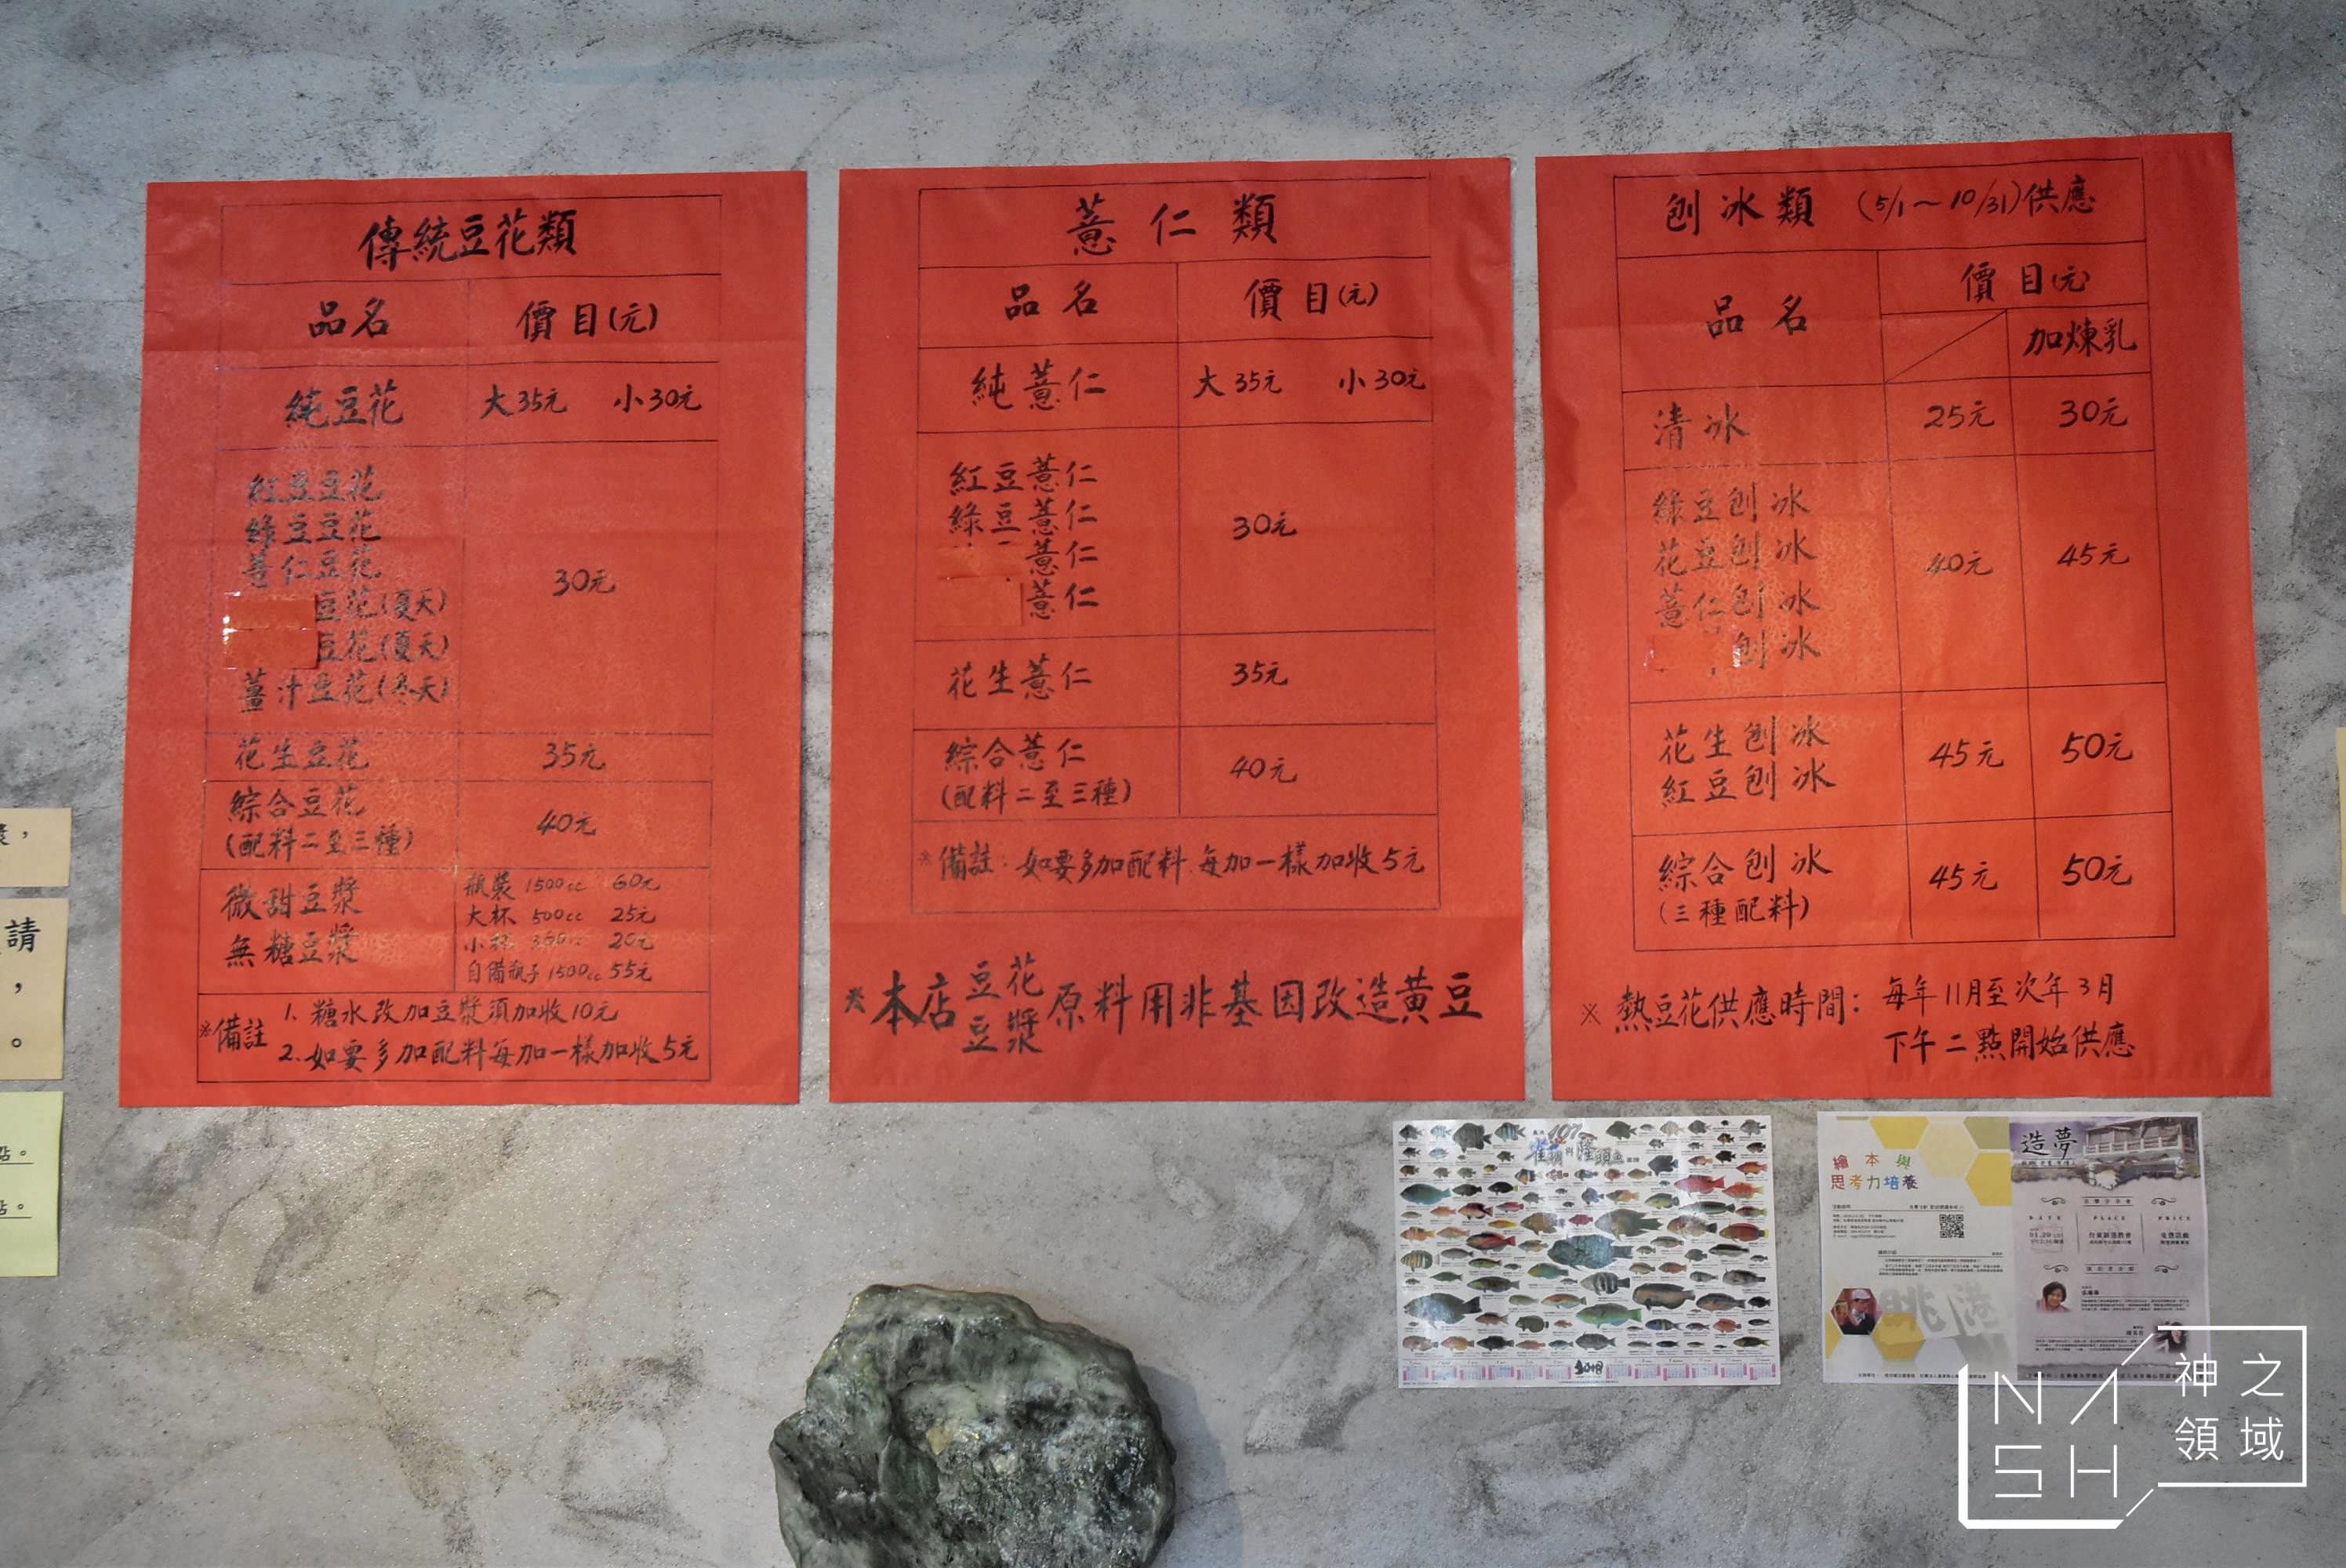 傳統豆花類
品名 價目(元)
純豆花 大35元 小30元
紅豆豆花
綠豆豆花
薏仁豆花
豆花(夏天)
豆花(夏天)
薑汁豆花(冬天)
30元
花生豆花 35元
綜合豆花
(配料二至三種)
40元
微甜豆漿
無糖豆漿
瓶裝 1500cc 60元
大杯 500cc 25元
小杯 360cc 20元
自備瓶子1500cc 55元
※備註
1. 糖水改加豆漿須加收10元
2. 如要多加配料每加一樣加收5元
薏仁類
品名 價目(元)
純薏仁 大35元 小30元
紅豆薏仁
綠豆薏仁
薏仁
薏仁
30元
花生薏仁 35元
綜合薏仁
(配料二至三種)
40元
※備註：如要多加配料 每加一樣加收5元
※本店豆花豆漿原料用非基因改造黃豆
刨冰類 (5/1～10/31)供應
品名 價目(元)
加煉乳
清冰 25元 30元
綠豆刨冰
花豆刨冰
薏仁刨冰
刨冰
40元 45元
花生刨冰
紅豆刨冰
45元 50元
綜合刨冰
(三種配料)
45元 50元
※熱豆花供應時間：每年11月至次年3月
下午二點開始供應
請
，
。
點。
107
2018
繪本與
思考力培養
造夢
DATE PLACE PRICE
NASH
神之
領域